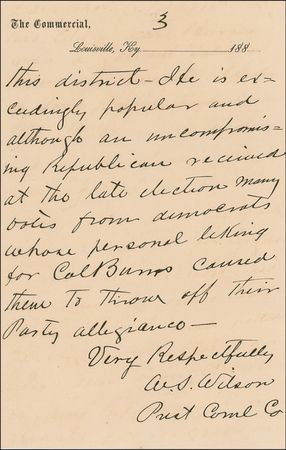 The Commercial,
3
Louisville, Ky. 188
this district — He is ex-
ceedingly popular and
although an uncompromis-
ing Republican received
at the late election many
votes from democrats
whose personal liking
for Col Burns caused
them to throw off their
Party allegiance —
Very Respectfully
W. S. Wilson
Prest Coml Co